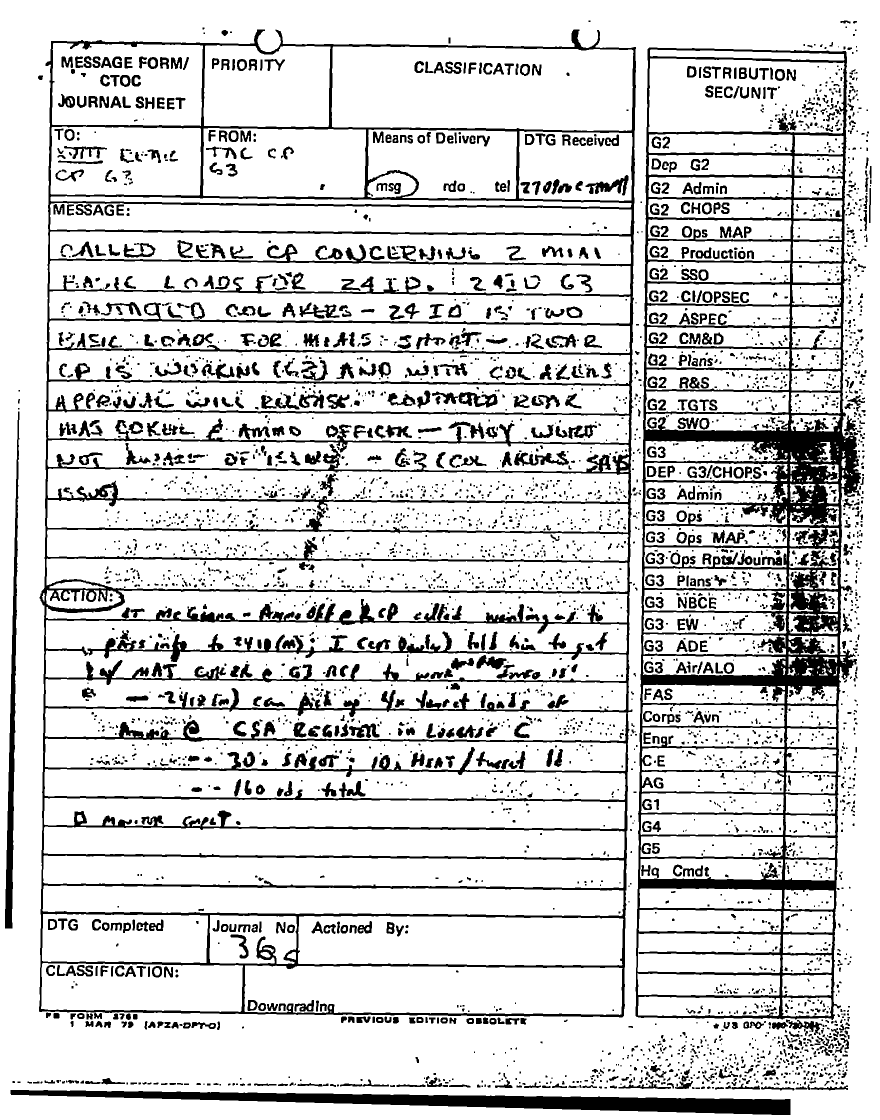 MESSAGE FORM/
CTOC
JOURNAL SHEET
PRIORITY
CLASSIFICATION
TO:
XVIII REAR
CP G3
FROM:
TAC CP
G3
Means of Delivery
msg rdo tel
DTG Received
MESSAGE:
CALLED REAR CP CONCERNING 2 M1A1
BASIC LOADS FOR 24 ID. 24ID G3
CONTACTED COL AKERS - 24 ID IS TWO
BASIC LOADS FOR M1A1S SHORT - REAR
CP IS WORKING (G3) AND WITH COL AKERS
APPROVAL WILL RELEASE. CONTACTED REAR
MAJ COKER & AMMO OFFICER - THEY WERE
NOT AWARE OF ISSUE - G3 (COL AKERS SAYS
ISSUE)
ACTION:
LT - Ammo Off @ RCP called wanting us to
pass info to 24ID(M); I told him to get
w/ MAJ COKER @ G3 RCP to work. INFO IS:
- 24ID(M) can pick up 4x turret loads of
Ammo @ CSA REGISTER in LOGBASE C
-- 30 SABOT; 10 HEAT/turret ld
-- 160 rds total
MONITOR CMPLT.
DTG Completed
Journal No
Actioned By:
CLASSIFICATION:
Downgrading
FB FORM 2768
1 MAR 79 (AFZA-DPT-O)
PREVIOUS EDITION OBSOLETE
DISTRIBUTION
SEC/UNIT
G2
Dep G2
G2 Admin
G2 CHOPS
G2 Ops MAP
G2 Production
G2 SSO
G2 CI/OPSEC
G2 ASPEC
G2 CM&D
G2 Plans
G2 R&S
G2 TGTS
G2 SWO
G3
DEP G3/CHOPS
G3 Admin
G3 Ops
G3 Ops MAP
G3 Ops Rpts/Journal
G3 Plans
G3 NBCE
G3 EW
G3 ADE
G3 Air/ALO
FAS
Corps Avn
Engr
C-E
AG
G1
G4
G5
Hq Cmdt